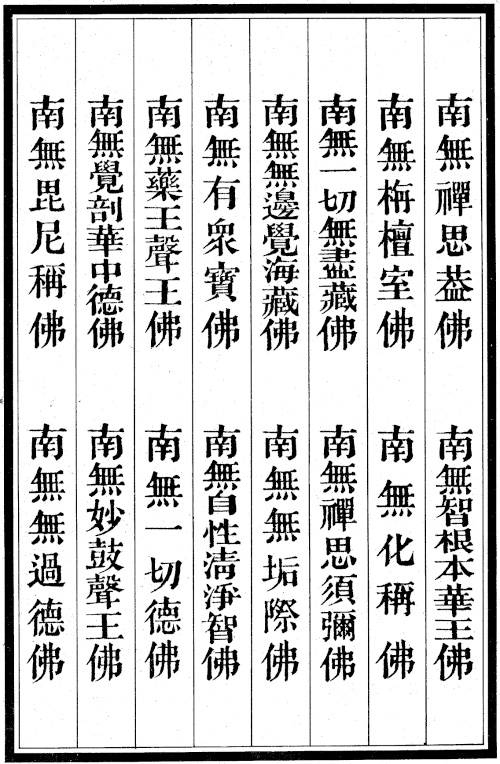 南無禪思葢佛
南無智根本華王佛
南無栴檀室佛
南無化稱佛
南無一切無盡藏佛
南無禪思須彌佛
南無無邊覺海藏佛
南無無垢際佛
南無有衆寶佛
南無自性清淨智佛
南無藥王聲王佛
南無一切德佛
南無覺剖華中德佛
南無妙鼓聲王佛
南無毘尼稱佛
南無無過德佛